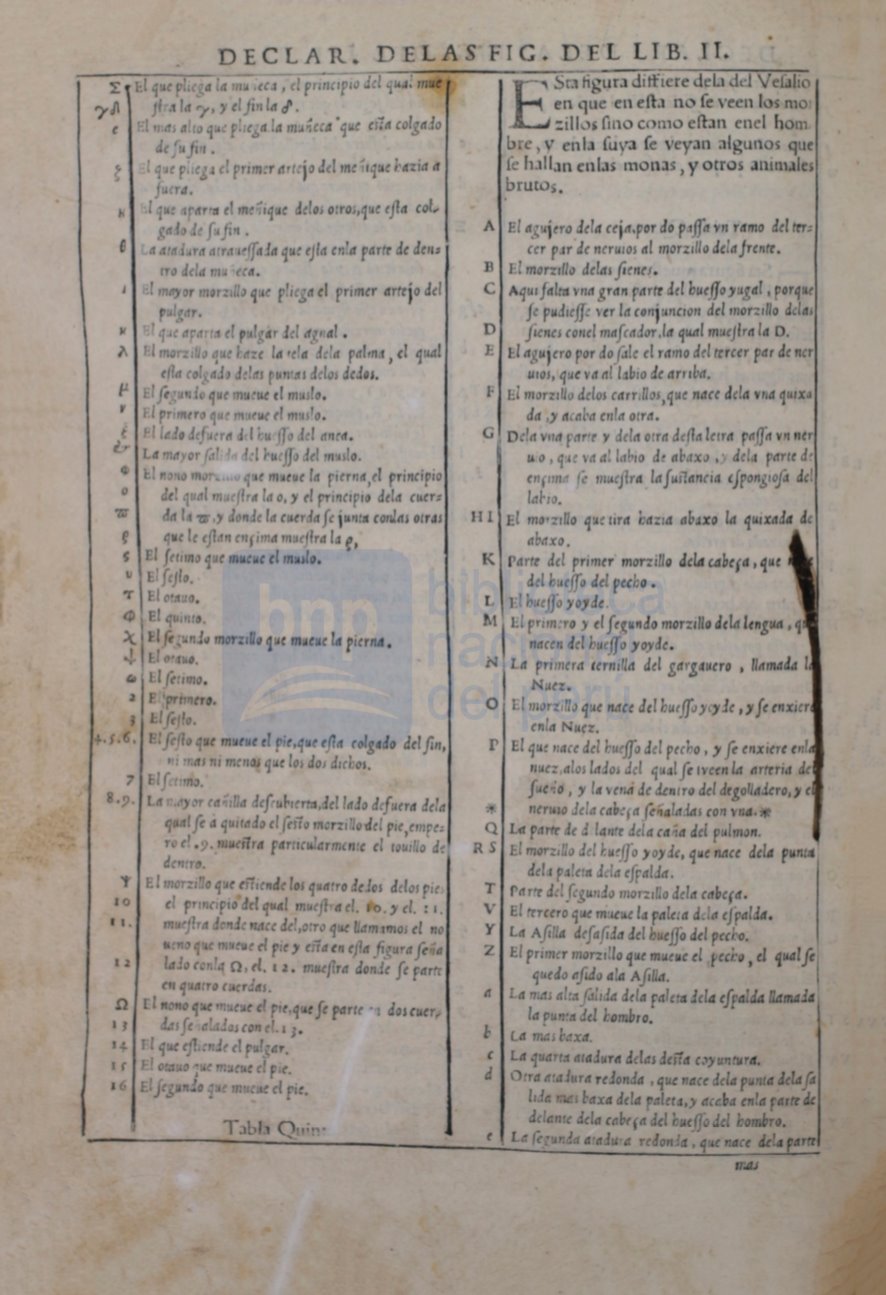 DECLAR. DELAS FIG. DEL LIB. II.
Σ El que pliega la muñeca, el principio del qual mue
ſtra la γ, y el fin la δ.
e El mas alto que pliega la muñeca que eſta colgado
de ſu fin.
El que pliega el primer artejo del meñique hazia a
fuera.
El que aparta el meñique delos otros, que eſta col-
gado de ſu fin.
θ La atadura atraueſſada que eſta enla parte de den-
tro dela muñeca.
ι El mayor morzillo que pliega el primer artejo del
pulgar.
κ El que aparta el pulgar del
λ El morzillo que haze la tela dela palma, el qual
eſta colgado delas puntas delos dedos.
μ El ſegundo que mueue el muslo.
ν El primero que mueue el muslo.
ξ El lado defuera del hueſſo del anca.
La mayor ſalida del hueſſo del muslo.
El nono morzillo que mueue la pierna, el principio
o del qual mueſtra la o, y el principio dela cuer-
ϖ da la ϖ, y donde la cuerda ſe junta conlas otras
ρ que le eſtan ençima mueſtra la ρ,
ς El ſetimo que mueue el muslo.
υ El ſeſto.
τ El otauo.
Φ El quinto.
χ El ſegundo morzillo que mueue la pierna.
ψ El otauo.
ω El ſetimo.
2 El primero.
3 El ſeſto.
4.5.6. El ſeſto que mueue el pie, que eſta colgado del fin,
ni mas ni menos que los dos dichos.
7 El ſetimo.
8.9. La mayor cañilla deſcubierta, del lado defuera dela
qual ſe a quitado el ſeſto morzillo del pie, empe-
ro el .9. mueſtra particularmente el touillo de
dentro.
Ψ El morzillo que eſtiende los quatro dedos delos pies
10 el principio del qual mueſtra el. 10. y el. 11.
11. mueſtra donde nace del, otro que llamamos el no
ueno que mueue el pie y eſta en eſta figura ſeña
12 lado conla Ω, el. 12. mueſtra donde ſe parte
en quatro cuerdas.
Ω El nono que mueue el pie, que ſe parte en dos cuer-
13 das ſeñalados con el. 13.
14 El que eſtiende el pulgar.
15 El otauo que mueue el pie.
16 El ſegundo que mueue el pie.
Tabla Quin
ESta figura differe dela del Veſalio
en que en eſta no ſe veen los mor
zillos ſino como eſtan enel hom
bre, y enla ſuya ſe veyan algunos que
ſe hallan enlas monas, y otros animales
brutos.
A El agujero dela ceja, por do paſſa vn ramo del ter-
cer par de neruios al morzillo dela frente.
B El morzillo delas ſienes.
C Aqui falta vna gran parte del hueſſo yugal, porque
ſe pudieſſe ver la conjuncion del morzillo delas
D ſienes conel maſcador, la qual mueſtra la D.
E El agujero por do ſale el ramo del tercer par de ner
uios, que va al labio de arriba.
F El morzillo delos carrillos, que nace dela vna quixa
da, y acaba enla otra.
G Dela vna parte y dela otra deſta letra paſſa vn ner
uio, que va al labio de abaxo, y dela parte de
ençima ſe mueſtra la ſuſtancia eſpongioſa del
labio.
H I El morzillo que tira hazia abaxo la quixada de
abaxo.
K Parte del primer morzillo dela cabeça, que
del hueſſo del pecho.
L El hueſſo yoyde.
M El primero y el ſegundo morzillo dela lengua, que
nacen del hueſſo yoyde.
N La primera ternilla del gargauero, llamada la
Nuez.
O El morzillo que nace del hueſſo yoyde, y ſe enxiere
enla Nuez.
P El que nace del hueſſo del pecho, y ſe enxiere enla
nuez, alos lados del qual ſe veen la arteria del
ſueño, y la vena de dentro del degolladero, y el
* neruio dela cabeça ſeñaladas con vna. *
Q La parte de delante dela caña del pulmon.
R S El morzillo del hueſſo yoyde, que nace dela punta
dela paleta dela eſpalda.
T Parte del ſegundo morzillo dela cabeça.
V El tercero que mueue la paleta dela eſpalda.
Y La Aſilla deſaſida del hueſſo del pecho.
Z El primer morzillo que mueue el pecho, el qual ſe
quedo aſido ala Aſilla.
a La mas alta ſalida dela paleta dela eſpalda llamada
la punta del hombro.
b La mas baxa.
c La quarta atadura delas deſta coyuntura.
d Otra atadura redonda, que nace dela punta dela ſa
lida mas baxa dela paleta, y acaba enla parte de
delante dela cabeça del hueſſo del hombro.
e La ſegunda atadura redonda, que nace dela parte
mas